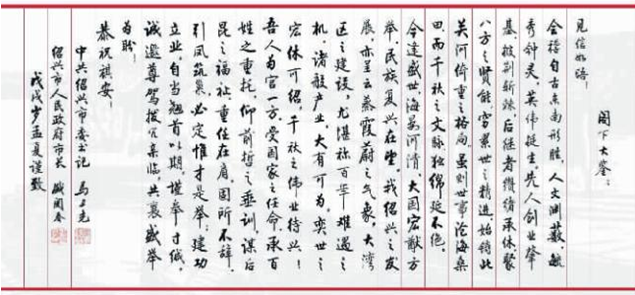 见信如晤：
阁下大鉴：
会稽自古东南形胜，人文渊薮，毓
秀钟灵，英伟挺生。先人创业肇
基，披荆斩棘，后继者缵绪承休，聚
八方之贤能，穷累世之精进，始铸此
关河倚重之格局。虽则世事沧海桑
田，而千秋之文脉独绵延不绝。
今逢盛世，海晏河清，大国宏猷方
举，民族复兴在望。我绍兴之发
展，亦呈云蒸霞蔚之气象，大湾
区之建设，尤堪称百年难遇之
机，诸般产业，大有可为。奕世之
宏休可绍，千秋之伟业待兴！
吾人为官一方，受国家之任命，承百
姓之重托，仰前哲之垂训，谋后
昆之福祉，重任在肩，固所不辞。
引凤筑巢，必定惟才是举；建功
立业，自当翘首以期。谨奉寸缄，
诚邀尊驾拨冗亲临，共襄盛举
为盼！
恭祝祺安。
中共绍兴市委书记 马卫光
绍兴市人民政府市长 盛阅春
戊戌岁孟夏谨致